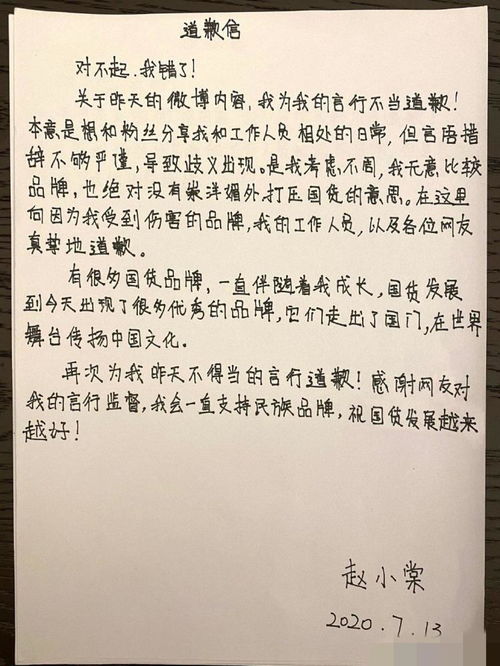 道歉信
对不起.我错了!
关于昨天的微博内容,我为我的言行不当道歉!
本意是想和粉丝分享我和工作人员相处的日常,但言语措
辞不够严谨,导致歧义出现。是我考虑不周,我无意比较
品牌,也绝对没有崇洋媚外打压国货的意思。在这里
向因为我受到伤害的品牌,我的工作人员,以及各位网友
真挚地道歉。
有很多国货品牌,一直伴随着我成长,国货发展
到今天出现了很多优秀的品牌,它们走出了国门,在世界
舞台传扬中国文化。
再次为我昨天不得当的言行道歉!感谢网友对
我的言行监督,我会一直支持民族品牌,祝国货发展越来
越好!
赵小棠
2020.7.13